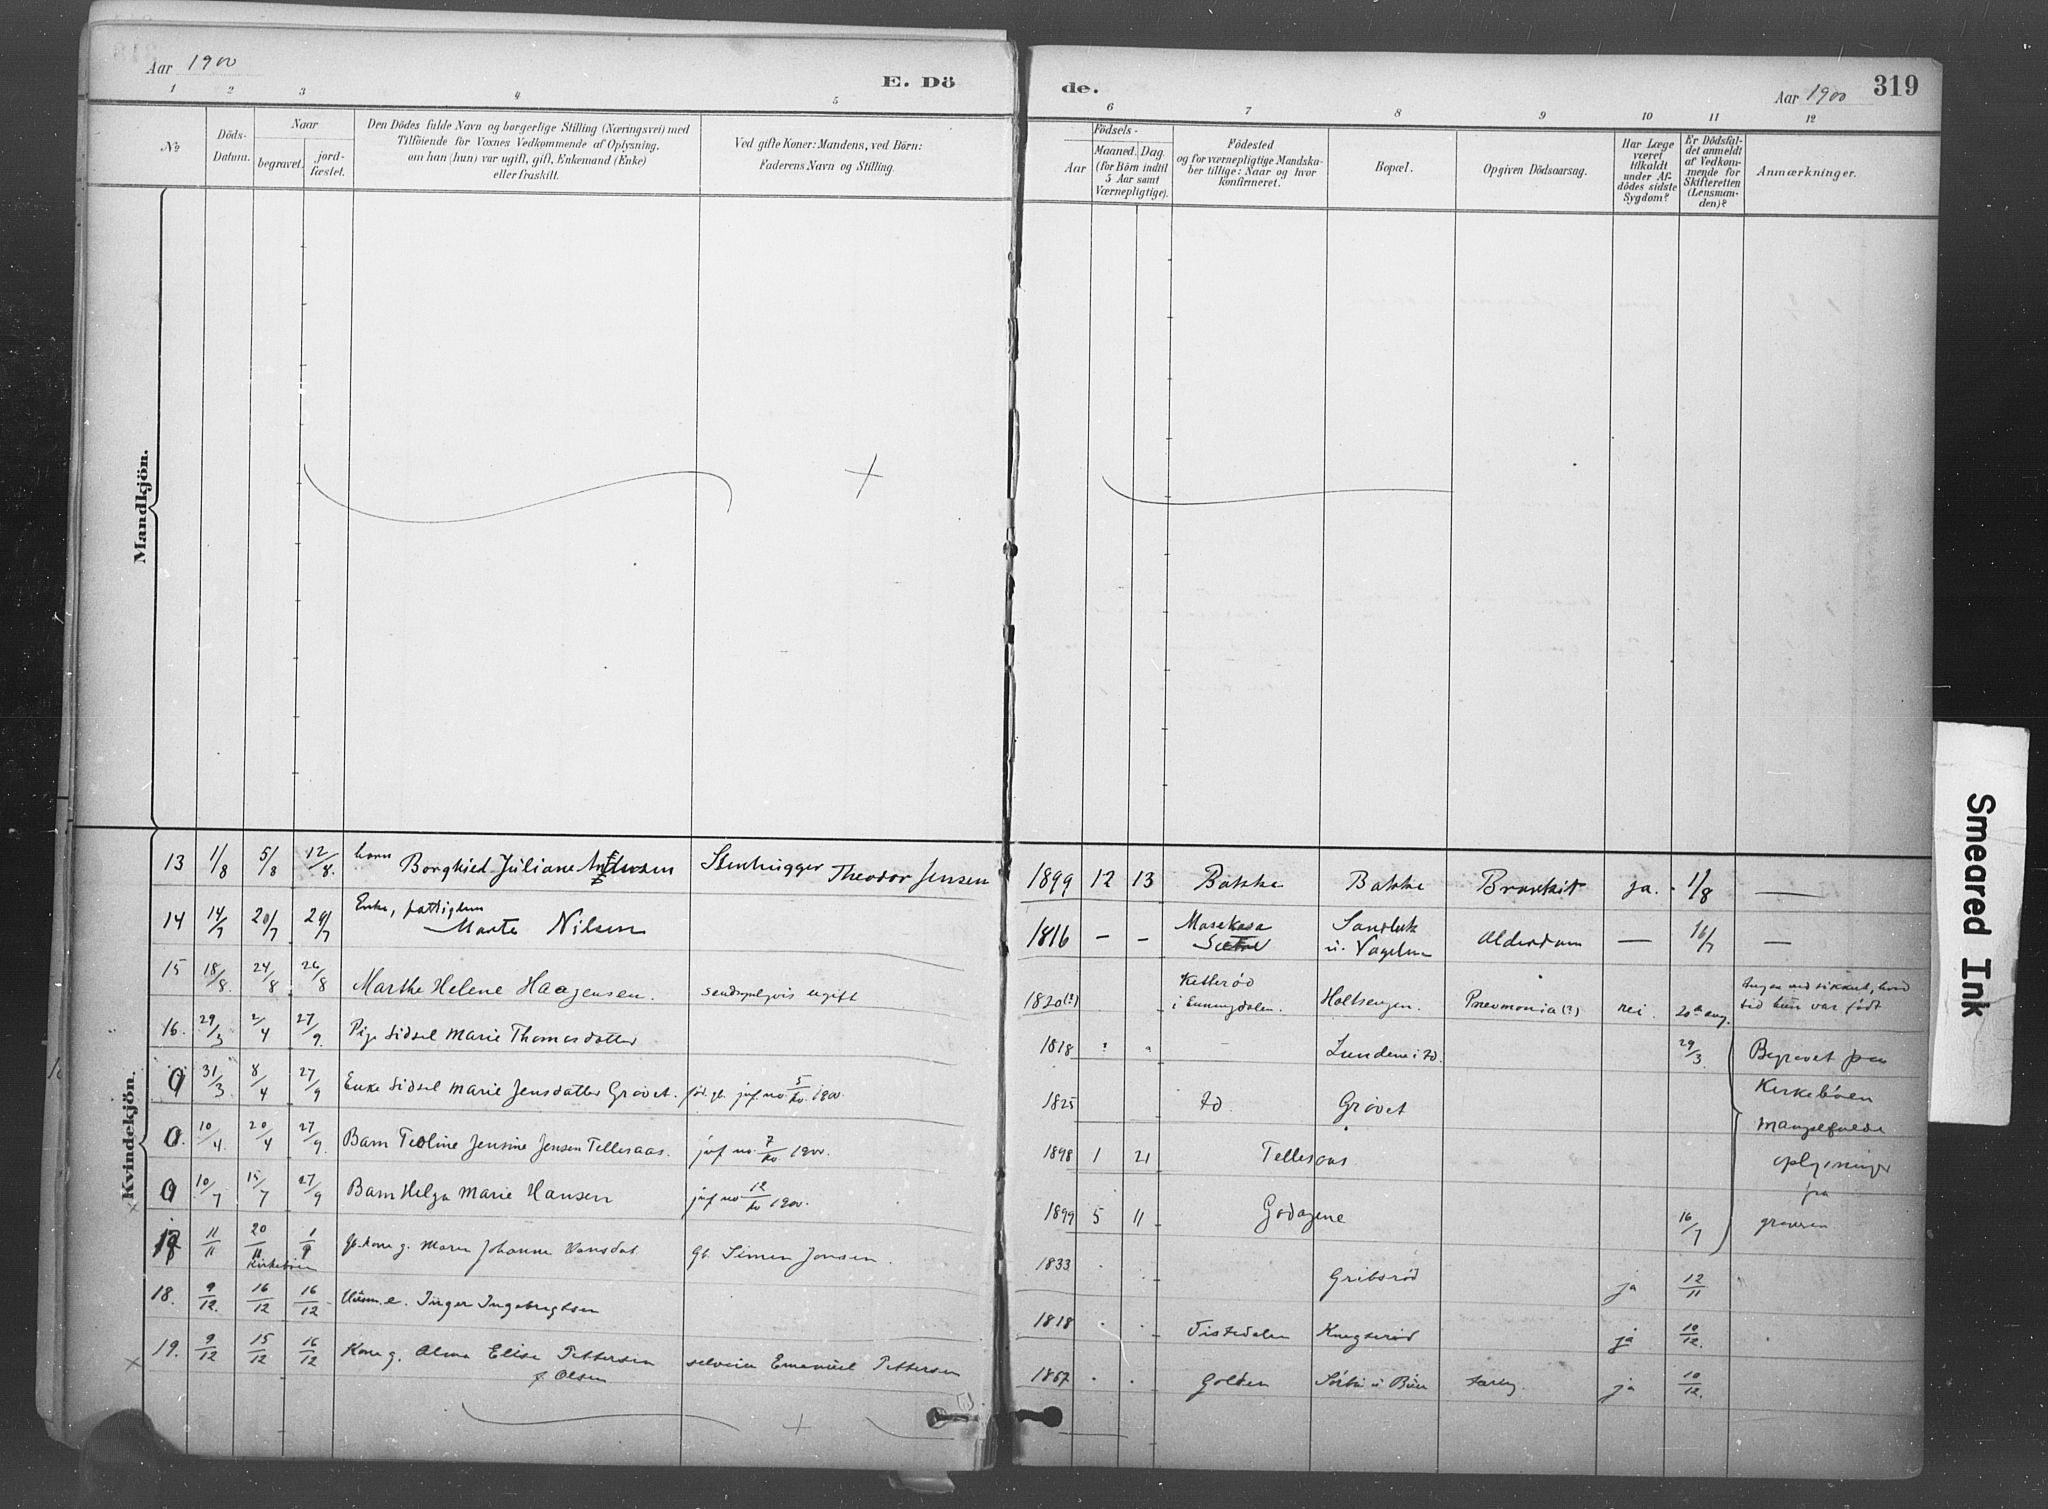 Aar 1900
E. Dö
de.
Aar 1900
319
1 2 3 4 5 6 7 8 9 10 11 12
No
Döds-Datum.
Naar
begravet.
jord-fæstet.
Den Dödes fulde Navn og borgerlige Stilling (Næringsvei) med
Tilföiende for Voxnes Vedkommende af Oplysning,
om han (hun) var ugift, gift, Enkemand (Enke)
eller fraskilt.
Ved gifte Koner: Mandens, ved Börn:
Faderens Navn og Stilling.
Födsels-
Aar
Maaned. Dag.
(for Börn indtil
5 Aar samt
Værnepligtige).
Födested
og for værnepligtige Mandska-
ber tillige: Naar og hvor
konfirmeret.
Bopæl.
Opgiven Dödsaarsag.
Har Læge
været
tilkaldt
under Af-
dödes sidste
Sygdom?
Er Dödsfal-
det anmeldt
af Vedkom-
mende for
Skifteretten
(Lensman-
den)?
Anmærkninger.
Mandkjön.
Kvindekjön.
13 1/8 5/8 12/8. barn Borghild Juliane Stenhugger Theodor Jensen 1899 12 13 Bakke Bakke Bronkit ja. 1/8 —
14 14/7 20/7 29/7 Enke, fattiglem Marte Nilsen 1816 — — Alderdom — 16/7 —
15 18/8. 24/8 26/8 Marthe Helene Haagensen. ugift 1820(?) i Enningdalen. Holtsengen. Pneumonia(?) nei 20de aug. hun var født
16. 29/3 2/4 27/9. Pige Sidsel Marie Thomasdatter 1818 29/3 Begravet paa
0 31/3 8/4 27/9 Enke Sidsel Marie Jensdatter Grøvet. jvf. no. 5/kv. 1900. 1825 Id. Grøvet Kirkebøen
0. 10/4. 20/4 27/9. Barn Teoline Jensine Jensen Tellesaas. jvf. no. 7/kv. 1900. 1898 1 21 Tellesaas Mangelfulde oplysninger
0 10/7 15/7 27/9 Barn Helga Marie Hansen jvf no 12/kv 1900. 1899 5 11 16/7 fra graveren
17 11/11 20/11 Kirkebøen Maren Johanne Simen Jensen. 1833 Gribsrød ja 12/11
18. 9/12. 16/12 16/12 Inger Ingebregtsen 1818 Tistedalen ja 10/12.
19. 9/12 15/12 16/12 Kone g. Alma Elise Pettersen f. Olsen selveier Emanuel Pettersen 1867 ja 10/12.
Smeared Ink